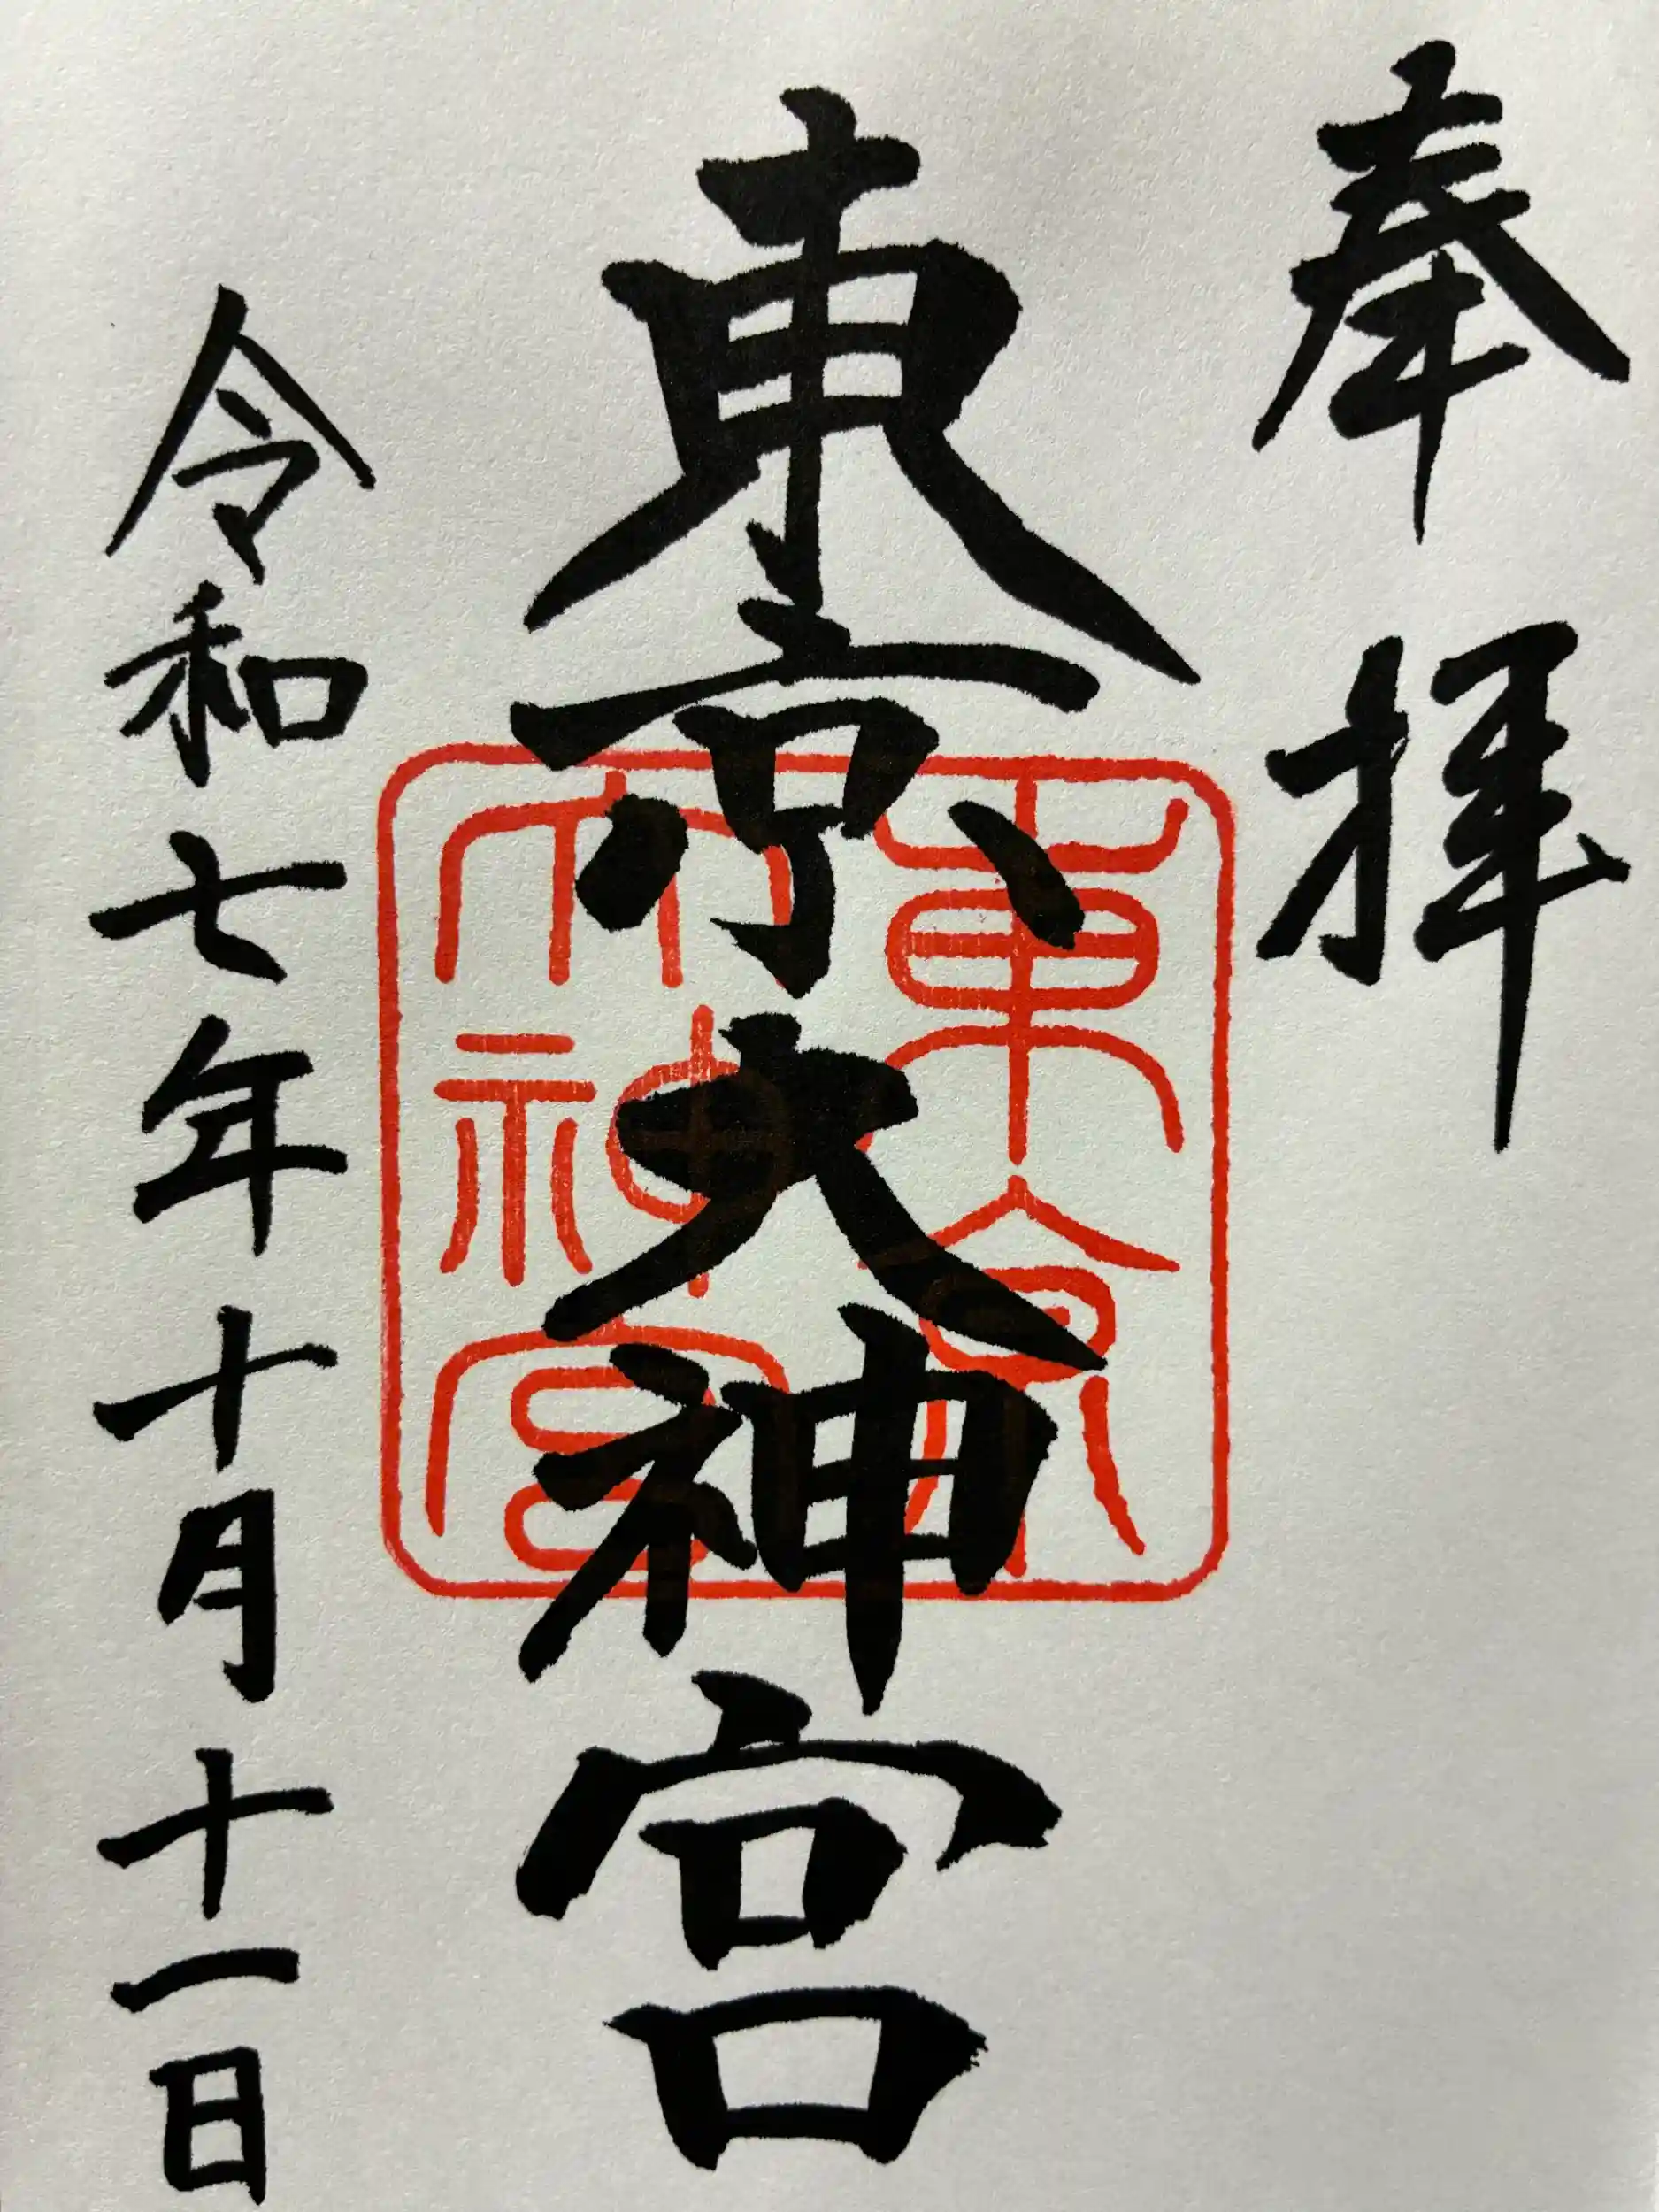 奉拝
東京大神宮
令和七年十月十一日
東京
大神宮